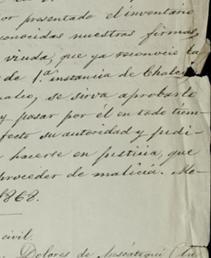 or presentado el inventario
conocidas nuestras firmas
viuda, que ya reconoció la
de 1.ª instancia de Chalco
se sirva aprobarlo
y pasar por él en todo tiem-
fecto su autoridad y judi-
hacerse en justicia, que
proceder de malicia. Mé-
1868.
civil.
Dolores de